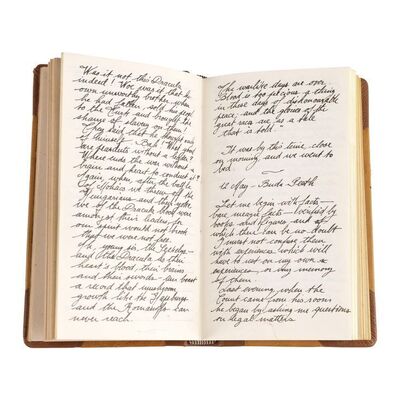 Was it not this Dracula
indeed! Woe was it that his
own unworthy brother, when
he had fallen, sold his people
to the Turk and brought the
shame of slavery on them!
They said that he thought only
of himself. Bah! What good
are peasants without a leader?
Where ends the war without a
brain and heart to conduct it?
Again, when, after the battle
of Mohács we threw off the
Hungarian yoke,
we of the Dracula blood were
amongst their leaders, for
our spirit would not brook
that we were not free.
Ah, young sir, the Szekelys—
and the Dracula as their
heart's blood, their brains
and their swords—can boast
a record that mushroom
growths like the Hapsburgs
and the Romanoffs can
never reach.
The warlike days are over.
Blood is too precious a thing
in these days of dishonourable
peace; and the glories of the
great races are as a tale
that is told."
It was by this time close
on morning, and we went to
bed.
12 May - Buda Pesth
Let me begin with facts—
bare, meagre facts—verified by
books and figures, and of
which there can be no doubt.
I must not confuse them
with experiences which will
have to rest on my own
experiences or my memory
of them.
Last evening when the
Count came from his room
he began by asking me questions
on legal matters